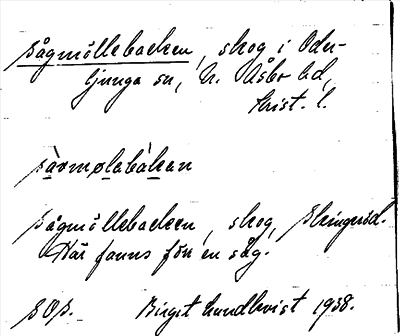 Sågmöllebacken, skog i Oder-
ljunga sn, N. Åsbo hd,
Krist. l.
såvmølabàkan
Sågmöllebacken, skog, Skingrid.
Här fanns förr en såg.
SOS. Birgit Lundkvist 1938.